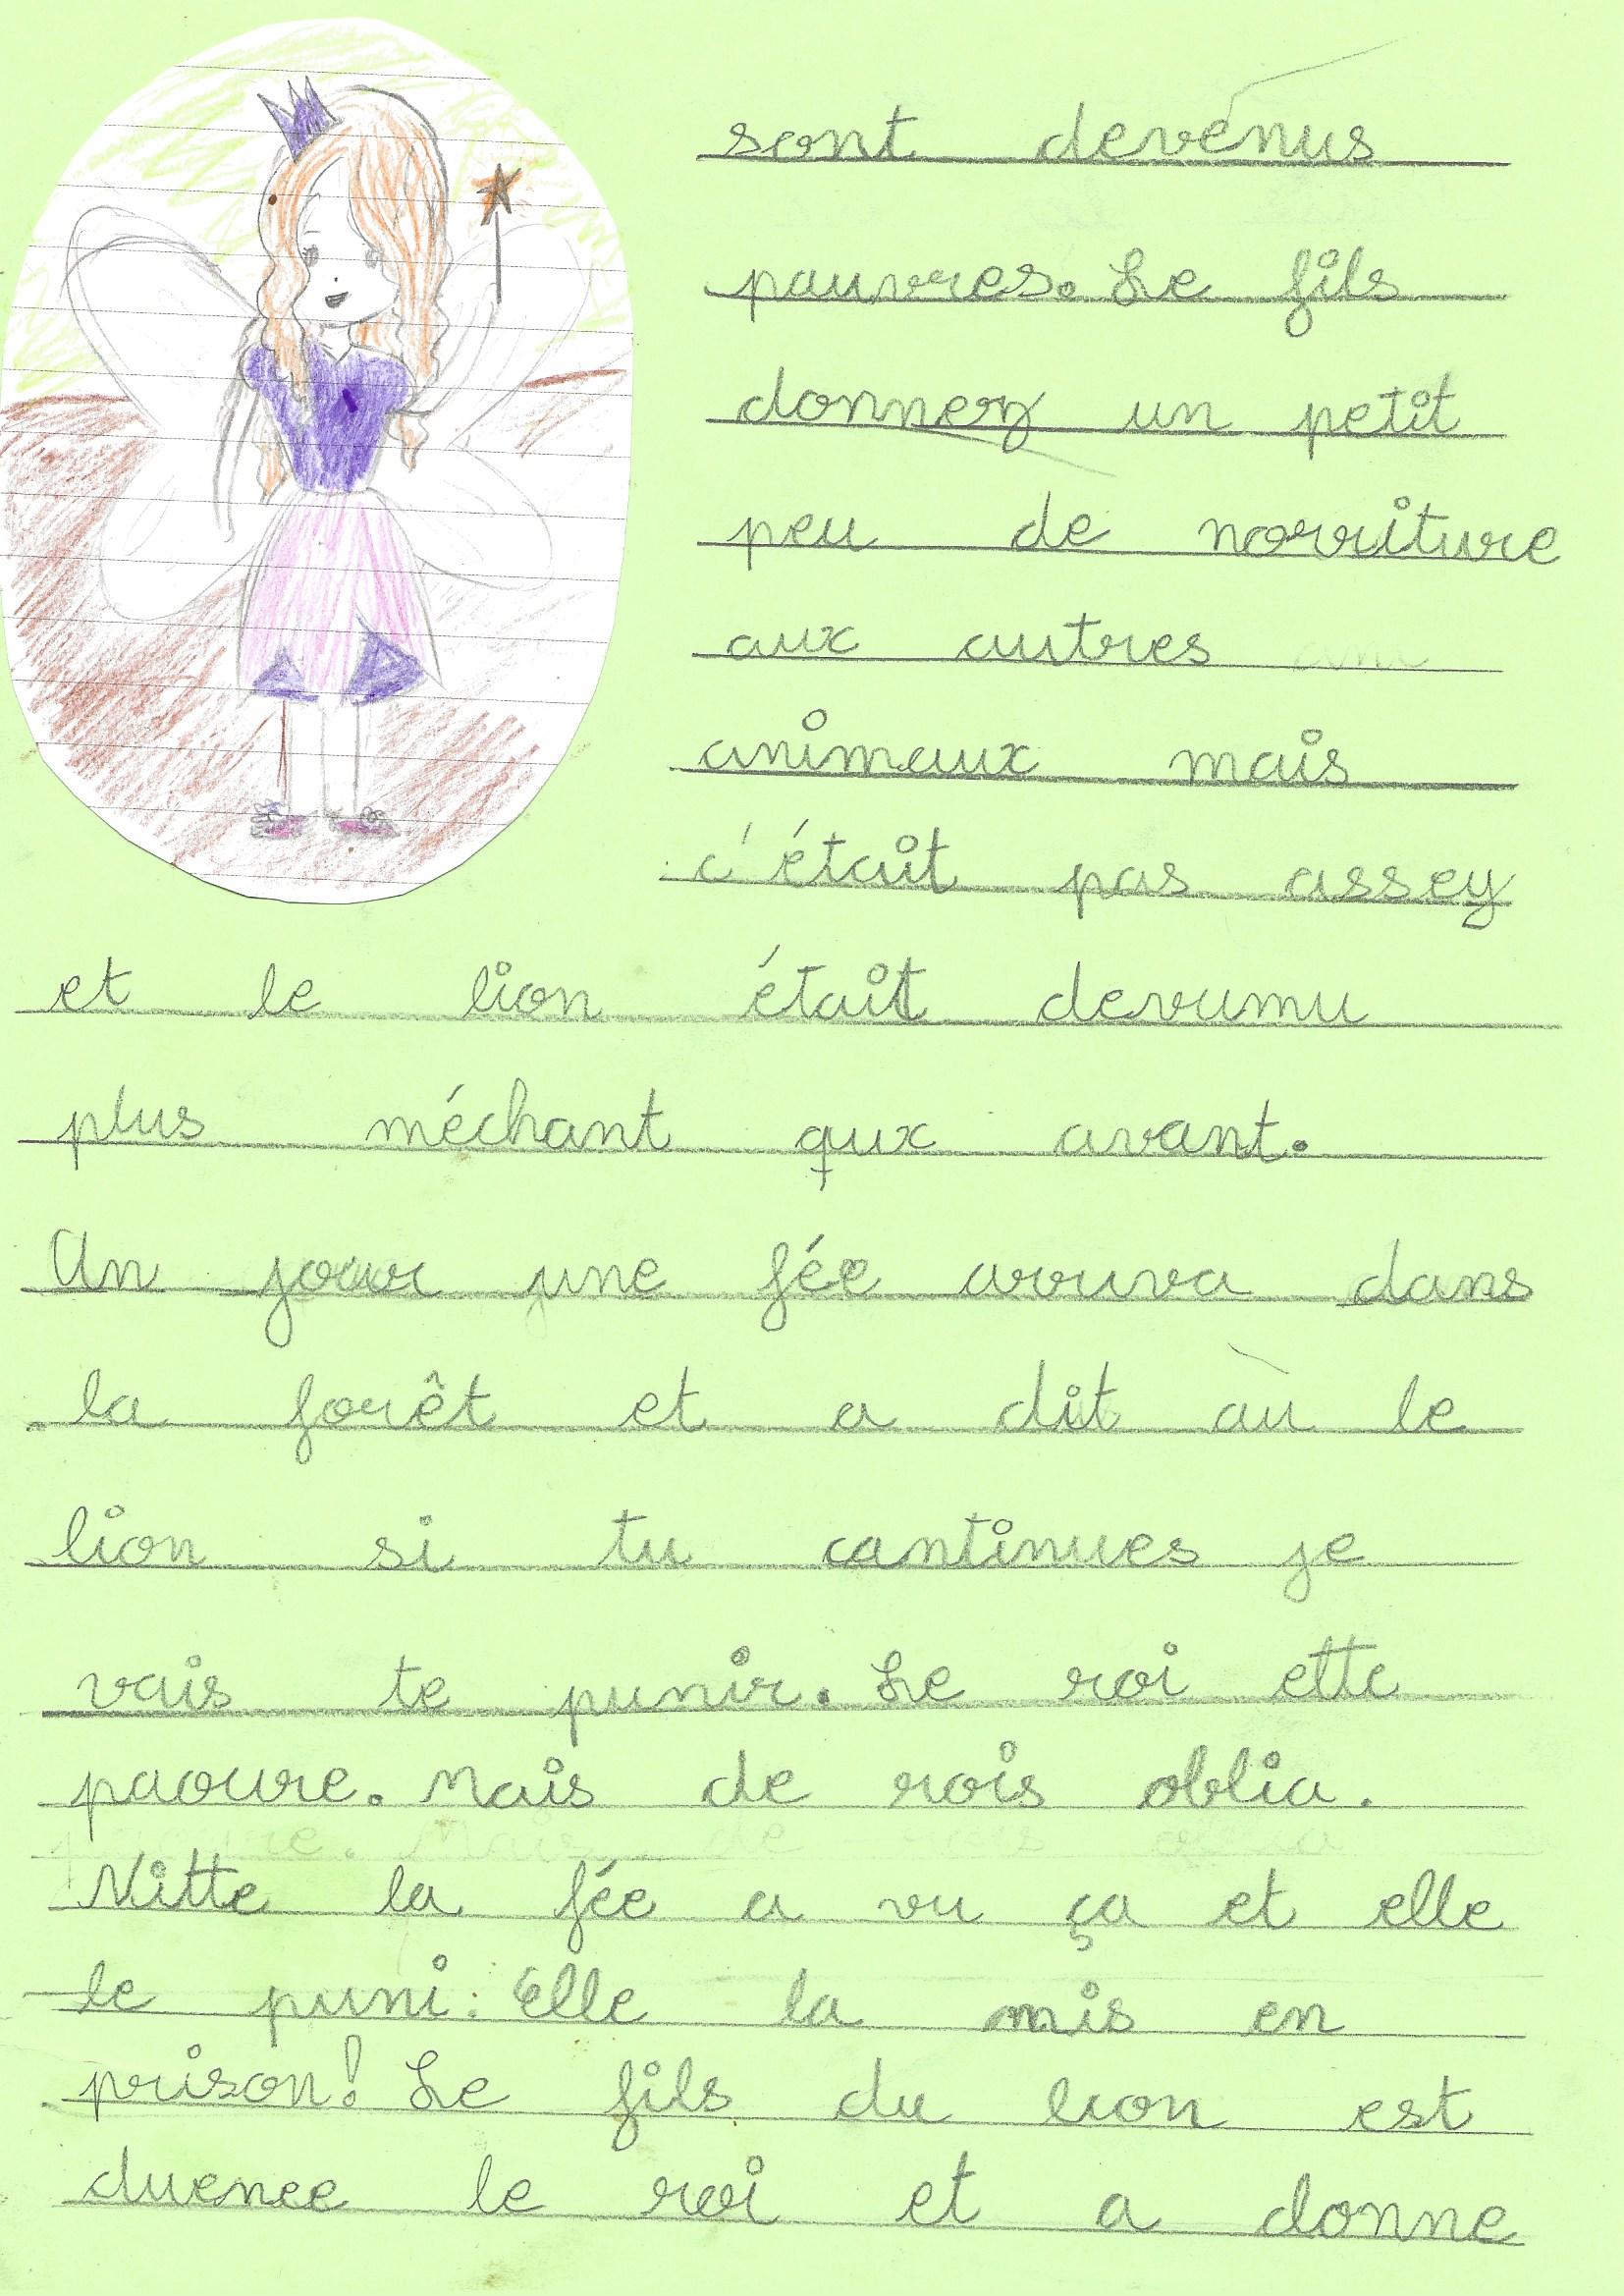 sont devenus
pauvres. Le fils
donnez un petit
peu de norriture
aux autres
animaux mais
c'était pas assez
et le lion était devumu
plus méchant qux avant.
Un jour une fée arriva dans
la forêt et a dit au le
lion si tu cantinues je
vais te punir. Le roi ette
paoure. Mais de rois oblia.
Nitte la fée a vu ça et elle
le puni. Elle la mis en
prison! Le fils du lion est
duenee le roi et a donne